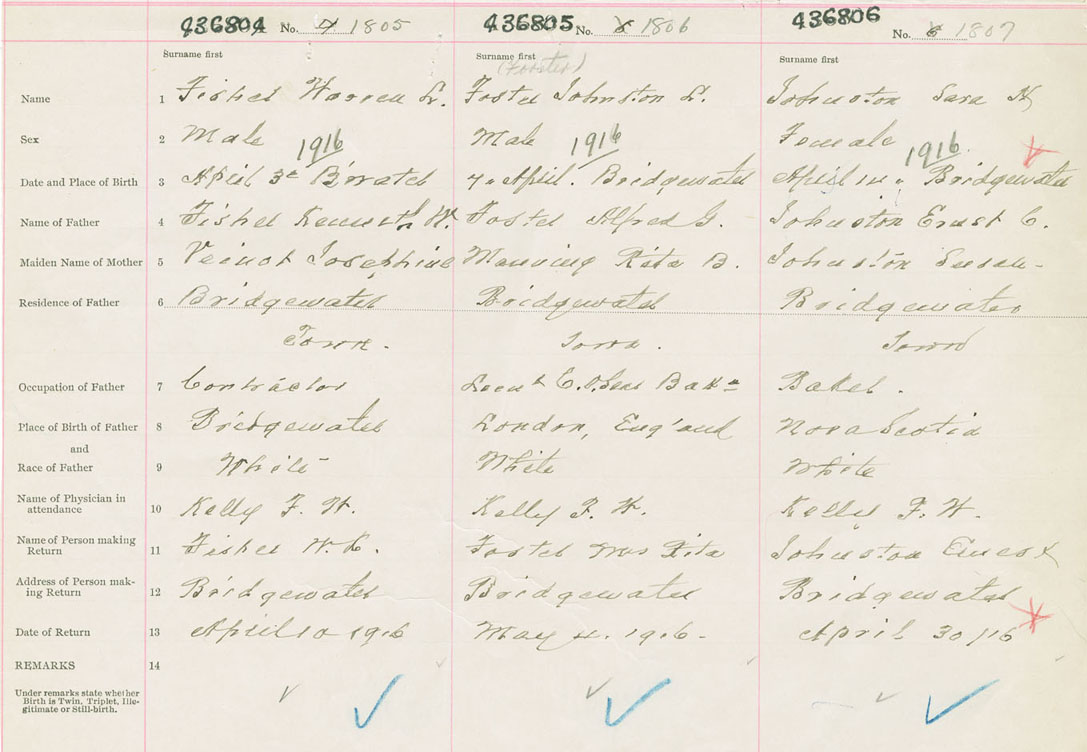 436804 No. 7 1805 436805 No. 8 1806 436806 No. 8 1807
Surname first Surname first Surname first
(Forster)
Name 1 Fisher Warren L. Foster Johnston L. Johnston Sara H
Sex 2 Male Male Female
1916 1916 1916.
Date and Place of Birth 3 April 3rd B'water 7. April. Bridgewater April 14. Bridgewater
Name of Father 4 Fisher Kenneth W. Foster Alfred G. Johnston Ernst C.
Maiden Name of Mother 5 Veinot Josephine Manning Rita B. Johnston Susan
Residence of Father 6 Bridgewater Bridgewater Bridgewater
Town. Town. Town
Occupation of Father 7 Contractor Lieut C. Seas Bat. Baker.
Place of Birth of Father 8 Bridgewater London, England Nova Scotia
and
Race of Father 9 White White White
Name of Physician in
attendance 10 Kelly F. W. Kelly F. W. Kelly F. W.
Name of Person making
Return 11 Fisher W. K. Foster Mrs Rita Johnston
Address of Person mak-
ing Return 12 Bridgewater Bridgewater Bridgewater
Date of Return 13 April 10 1916 May 4. 1916- April 30/16
REMARKS 14
Under remarks state whether
Birth is Twin. Triplet, Ille-
gitimate or Still-birth.